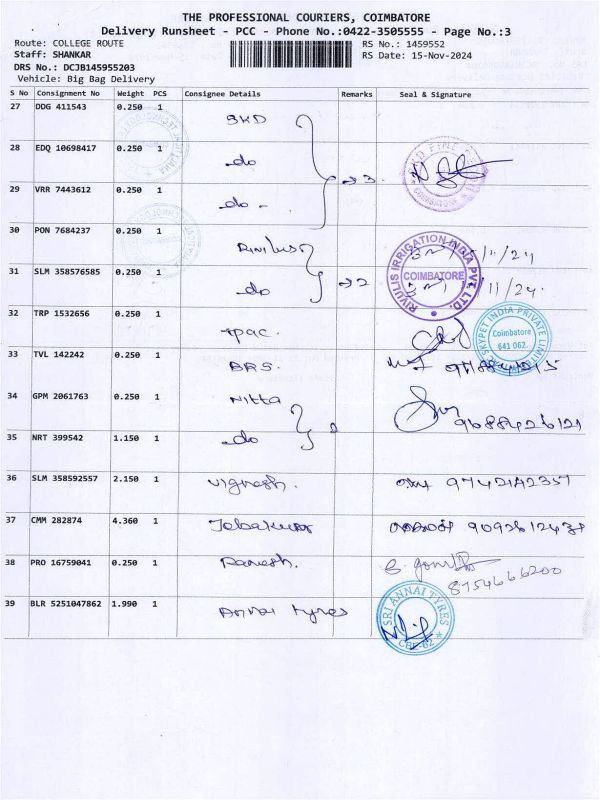 THE PROFESSIONAL COURIERS, COIMBATORE
Delivery Runsheet - PCC - Phone No.:0422-3505555 - Page No.:3
Route: COLLEGE ROUTE RS No.: 1459552
Staff: SHANKAR RS Date: 15-Nov-2024
DRS No.: DCJB145955203
Vehicle: Big Bag Delivery
S No Consignment No Weight PCS Consignee Details Remarks Seal & Signature
27 DDG 411543 0.250 1 SKD
28 EDQ 10698417 0.250 1 do 3
29 VRR 7443612 0.250 1 do
COIMBATORE
30 PON 7684237 0.250 1
RIVULIS IRRIGATION INDIA PVT. LTD. COIMBATORE
31 SLM 358576585 0.250 1 do 2 11/24
32 TRP 1532656 0.250 1
SKYPET INDIA PRIVATE LIMITED Coimbatore 641 062.
33 TVL 142242 0.250 1 BRS.
34 GPM 2061763 0.250 1 Nitta
35 NRT 399542 1.150 1 do
36 SLM 358592557 2.150 1 Vignesh.
37 CMM 282874 4.360 1
38 PRO 16759041 0.250 1 8754666200
39 BLR 5251047862 1.990 1 Annai tyres
SRI ANNAI TYRES CBE-62